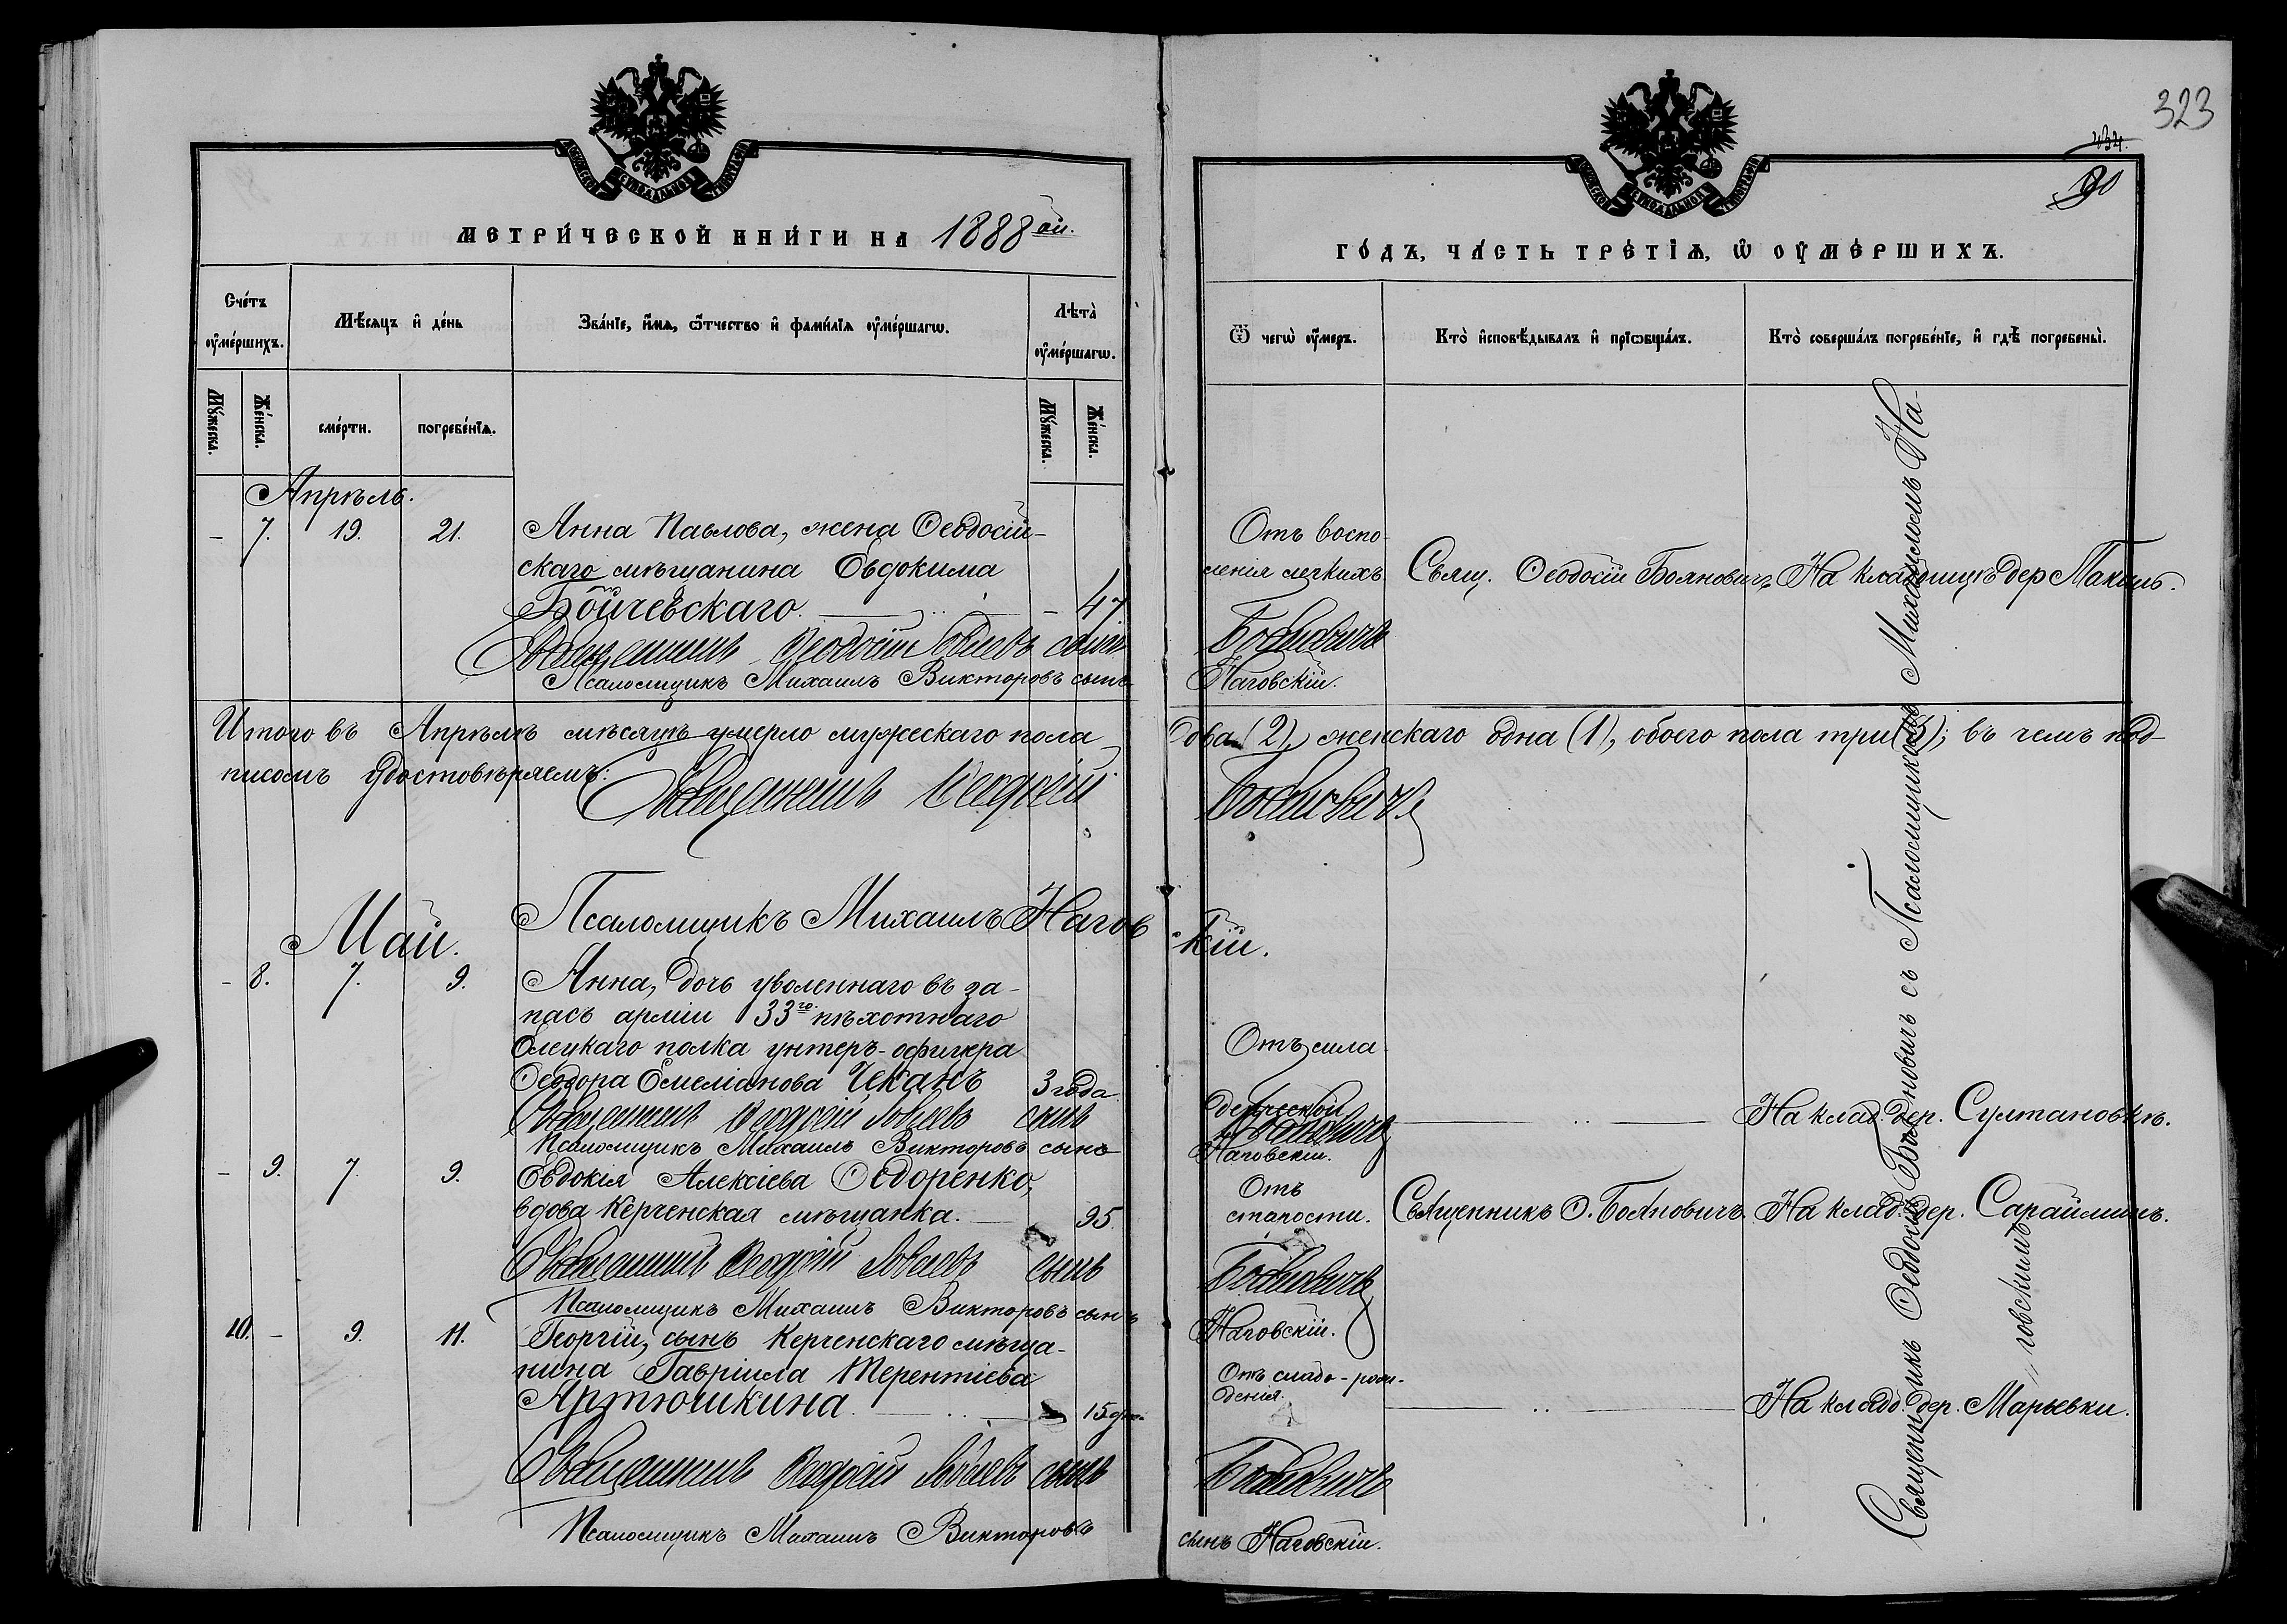 323
434.
90
МОСКОВСКОЙ СѴНОДАЛЬНОЙ ТИПОГРАФІИ
МОСКОВСКОЙ СѴНОДАЛЬНОЙ ТИПОГРАФІИ
МЕТРИ́ЧЕСКОЙ КНИ́ГИ НА 1888 ой.
ГО́ДЪ, ЧА́СТЬ ТРЕ́ТІѦ, Ѡ ОУ҆МЕ́РШИХЪ.
Сче́тъ оу҆ме́ршихъ.
Мѣ́сяцъ и҆ де́нь
Зва́нїе, и҆́мя, ѻ҆́тчество и҆ фами́лїя оу҆ме́ршагѡ.
Лѣта̀ оу҆ме́ршагѡ.
Ѿ чегѡ̀ оу҆́меръ.
Кто̀ и҆сповѣ́дывалъ и҆ прїѡбща́лъ.
Кто̀ соверша́лъ погребе́нїе, и҆ гдѣ̀ погребены̀.
Мꙋ́жеска.
Же́нска.
сме́рти.
погребе́нїѧ.
Мꙋ́жеска.
Же́нска.
Апрѣль.
– 7. 19. 21. Анна Павлова, жена Ѳеодосій-
скаго мѣщанина Евдокима
Бойчевскаго. – 47
Отъ воспо-
ленія легкихъ.
Свящ. Ѳеодосій Бояновичъ
На кладбищѣ дер
Священникъ Ѳеодосій сынъ Бояновичъ
Псаломщикъ Михаилъ Викторовъ сынъ Наговскій.
Итого въ Апрѣлѣ мѣсяцѣ умерло мужескаго пола два (2), женскаго одна (1), обоего пола три (3); въ чемъ под-
писомъ удостовѣряемъ:
Священникъ Ѳеодосій Бояновичъ
Псаломщикъ Михаилъ Наговскій.
Май.
– 8. 7. 9. Анна, дочь уволеннаго въ за-
пасъ арміи 33го пѣхотнаго
Елецкаго полка унтеръ-офицера
Ѳеодора Емеліанова Чеканъ 3 года
Отъ
На клад. дер. Султановкѣ.
Священникъ Ѳеодосій сынъ Бояновичъ
Псаломщикъ Михаилъ Викторовъ сынъ Наговскій.
– 9. 7. 9. Евдокія Алексіева Ѳедоренко,
вдова Керченская мѣщанка. 95
Отъ
старости.
Священникъ Ѳ. Бояновичъ.
На клад. дер. Сарайминъ.
Священникъ Ѳеодосій сынъ Бояновичъ
Псаломщикъ Михаилъ Викторовъ сынъ Наговскій.
10. – 9. 11. Георгій, сынъ Керченскаго мѣща-
нина Гавріила Терентіева
Артюшкина. 15 дн.
Отъ слабо-рож-
денія.
На кладб. дер. Марьевки.
Священникъ Ѳеодосій сынъ Бояновичъ
Псаломщикъ Михаилъ Викторовъ сынъ Наговскій.
Священникъ Ѳеодосій Бояновичъ съ Псаломщикомъ Михаиломъ На-
говскимъ